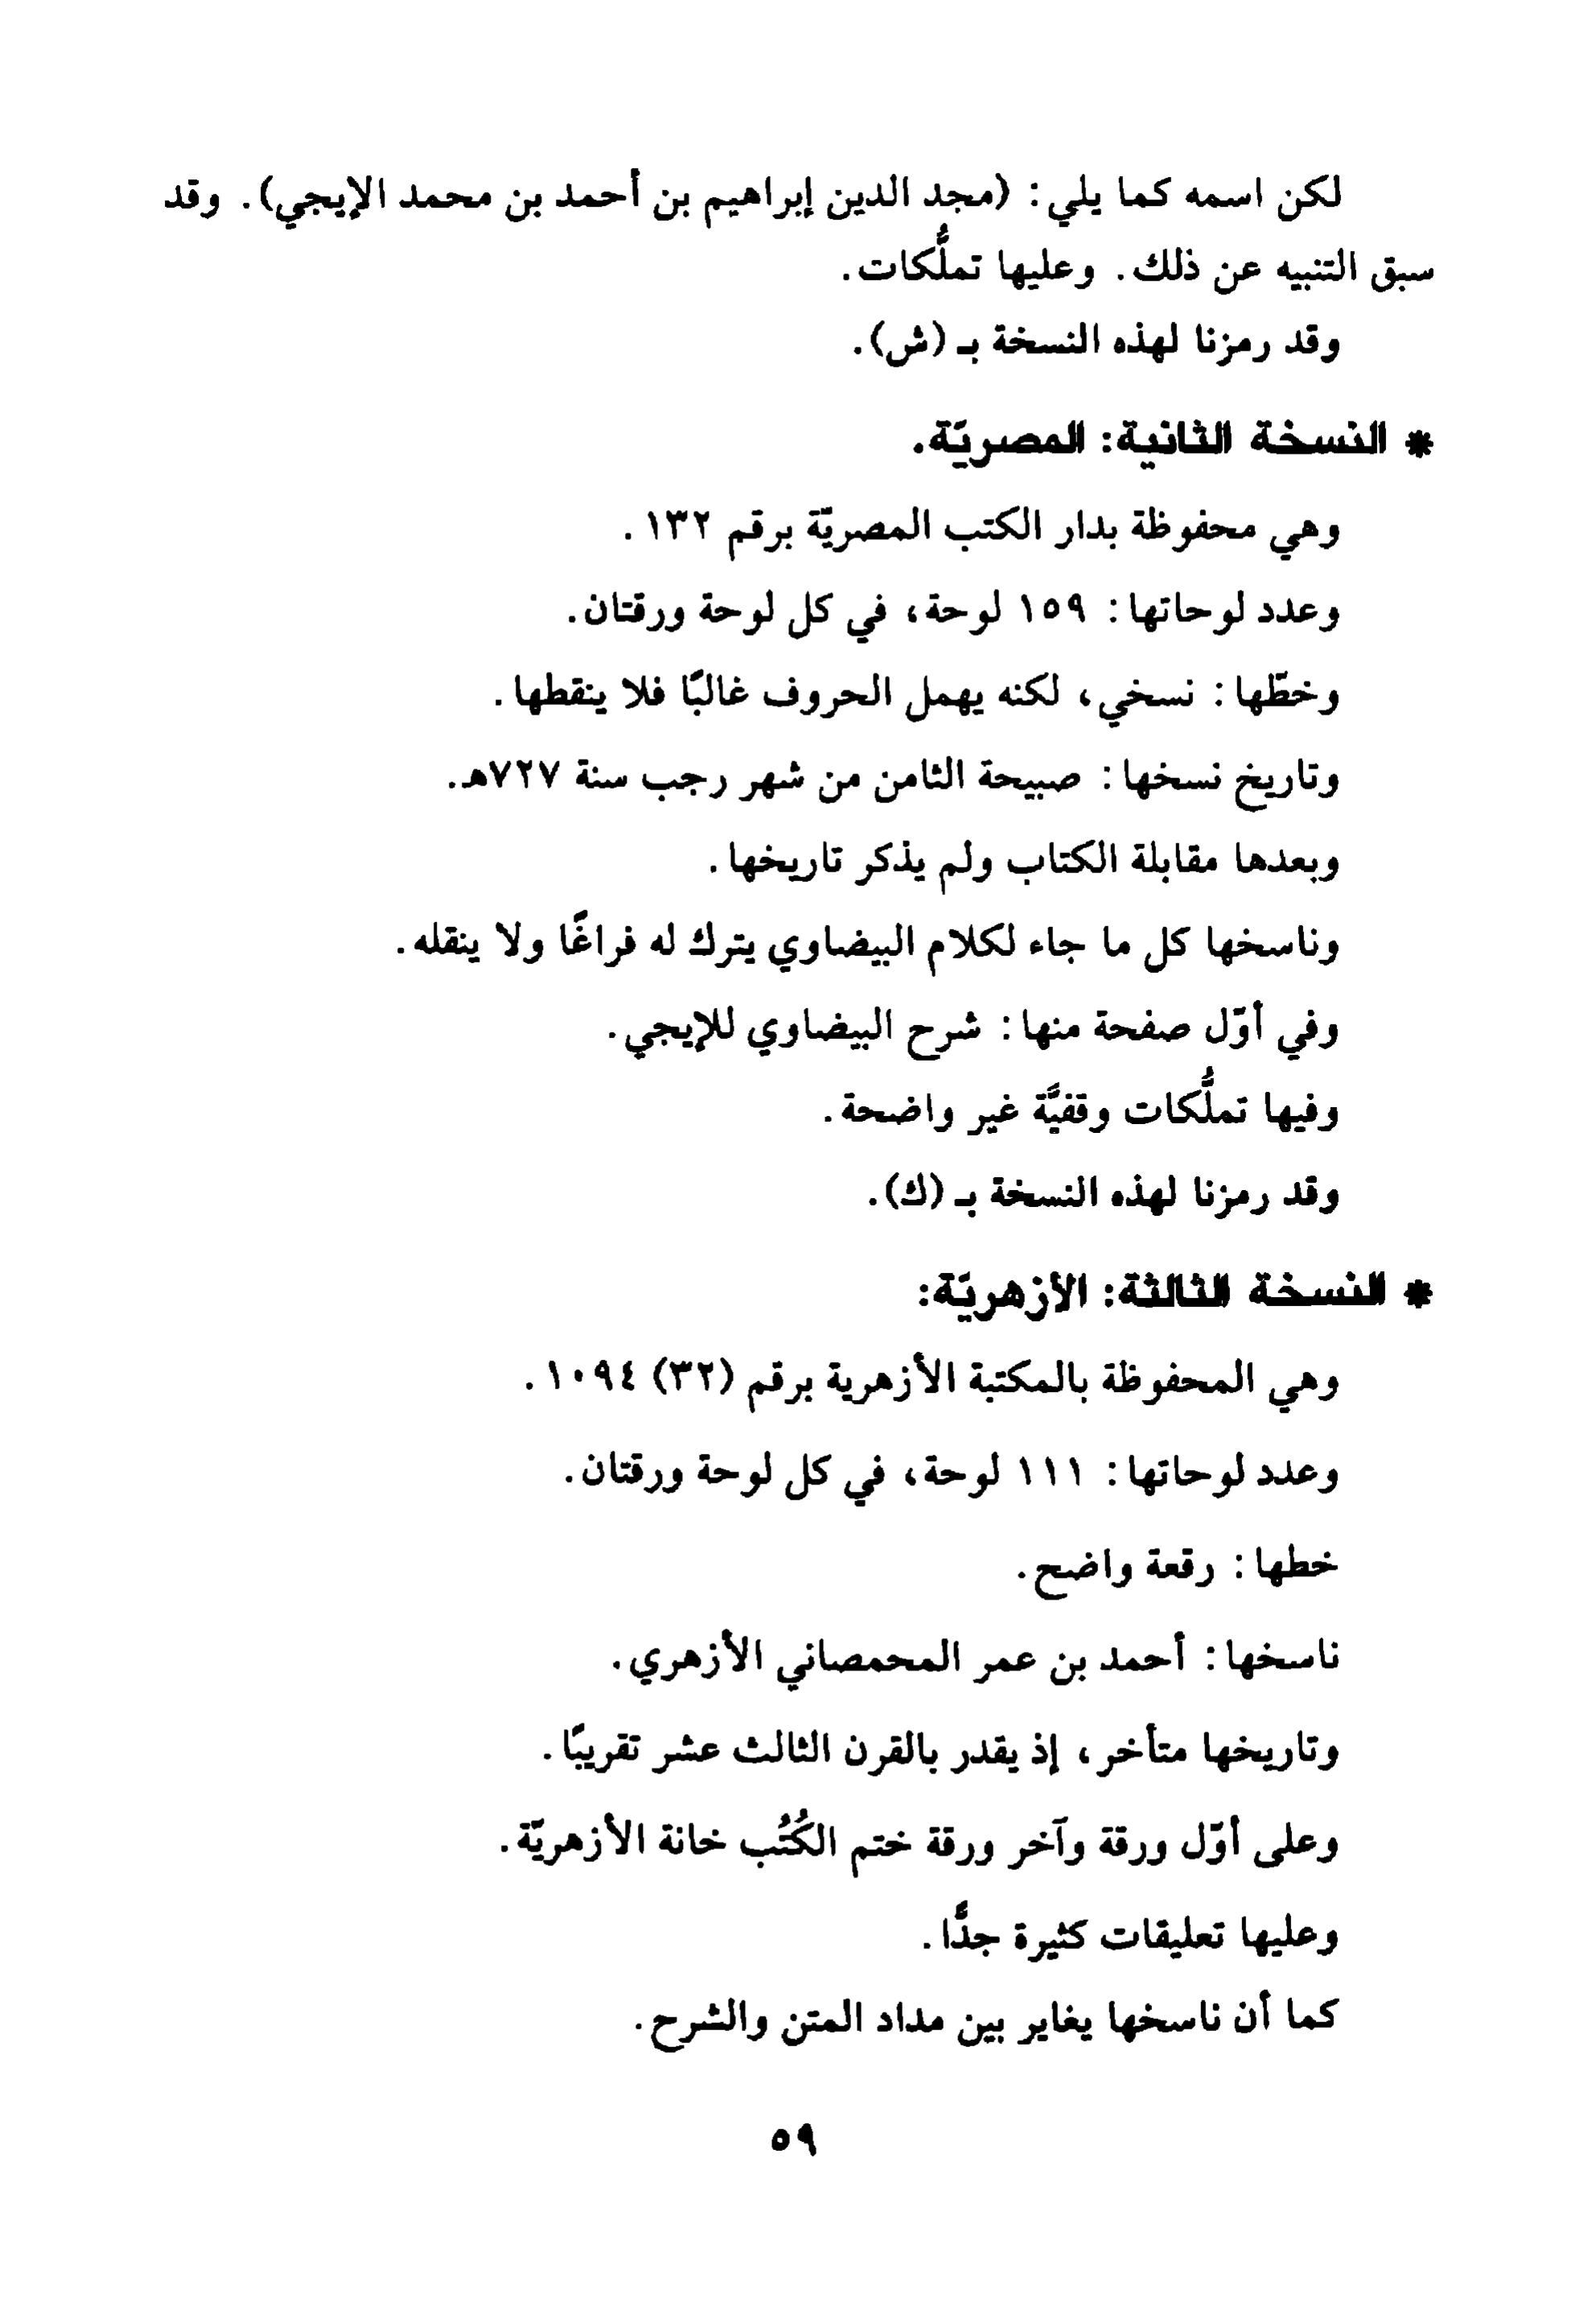 لكن اسمه كما يلي: (مجد الدين إبراهيم بن أحمد بن محمد الإيجي). وقد
سبق التنبيه عن ذلك. وعليها تملُّكات.
وقد رمزنا لهذه النسخة بـ (ش).
* النسخة الثانية: المصريّة.
وهي محفوظة بدار الكتب المصريّة برقم ١٣٢.
وعدد لوحاتها: ١٥٩ لوحة، في كل لوحة ورقتان.
وخطّها: نسخي، لكنه يهمل الحروف غالبًا فلا ينقطها.
وتاريخ نسخها: صبيحة الثامن من شهر رجب سنة ٧٢٧هـ.
وبعدها مقابلة الكتاب ولم يذكر تاريخها.
وناسخها كل ما جاء لكلام البيضاوي يترك له فراغًا ولا ينقله.
وفي أوّل صفحة منها: شرح البيضاوي للإيجي.
وفيها تملُّكات وقفيَّة غير واضحة.
وقد رمزنا لهذه النسخة بـ (ك).
* النسخة الثالثة: الأزهريّة:
وهي المحفوظة بالمكتبة الأزهرية برقم (٣٢) ١٠٩٤.
وعدد لوحاتها: ١١١ لوحة، في كل لوحة ورقتان.
خطها: رقعة واضح.
ناسخها: أحمد بن عمر المحمصاني الأزهري.
وتاريخها متأخر، إذ يقدر بالقرن الثالث عشر تقريبًا.
وعلى أوّل ورقة وآخر ورقة ختم الكُتُب خانة الأزهريّة.
وعليها تعليقات كثيرة جدًّا.
كما أن ناسخها يغاير بين مداد المتن والشرح.
٥٩